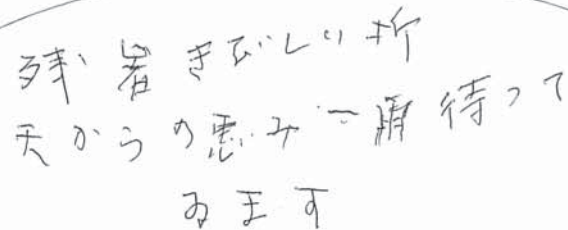 残暑きびしい折
天からの恵み一雨待って
ゐます